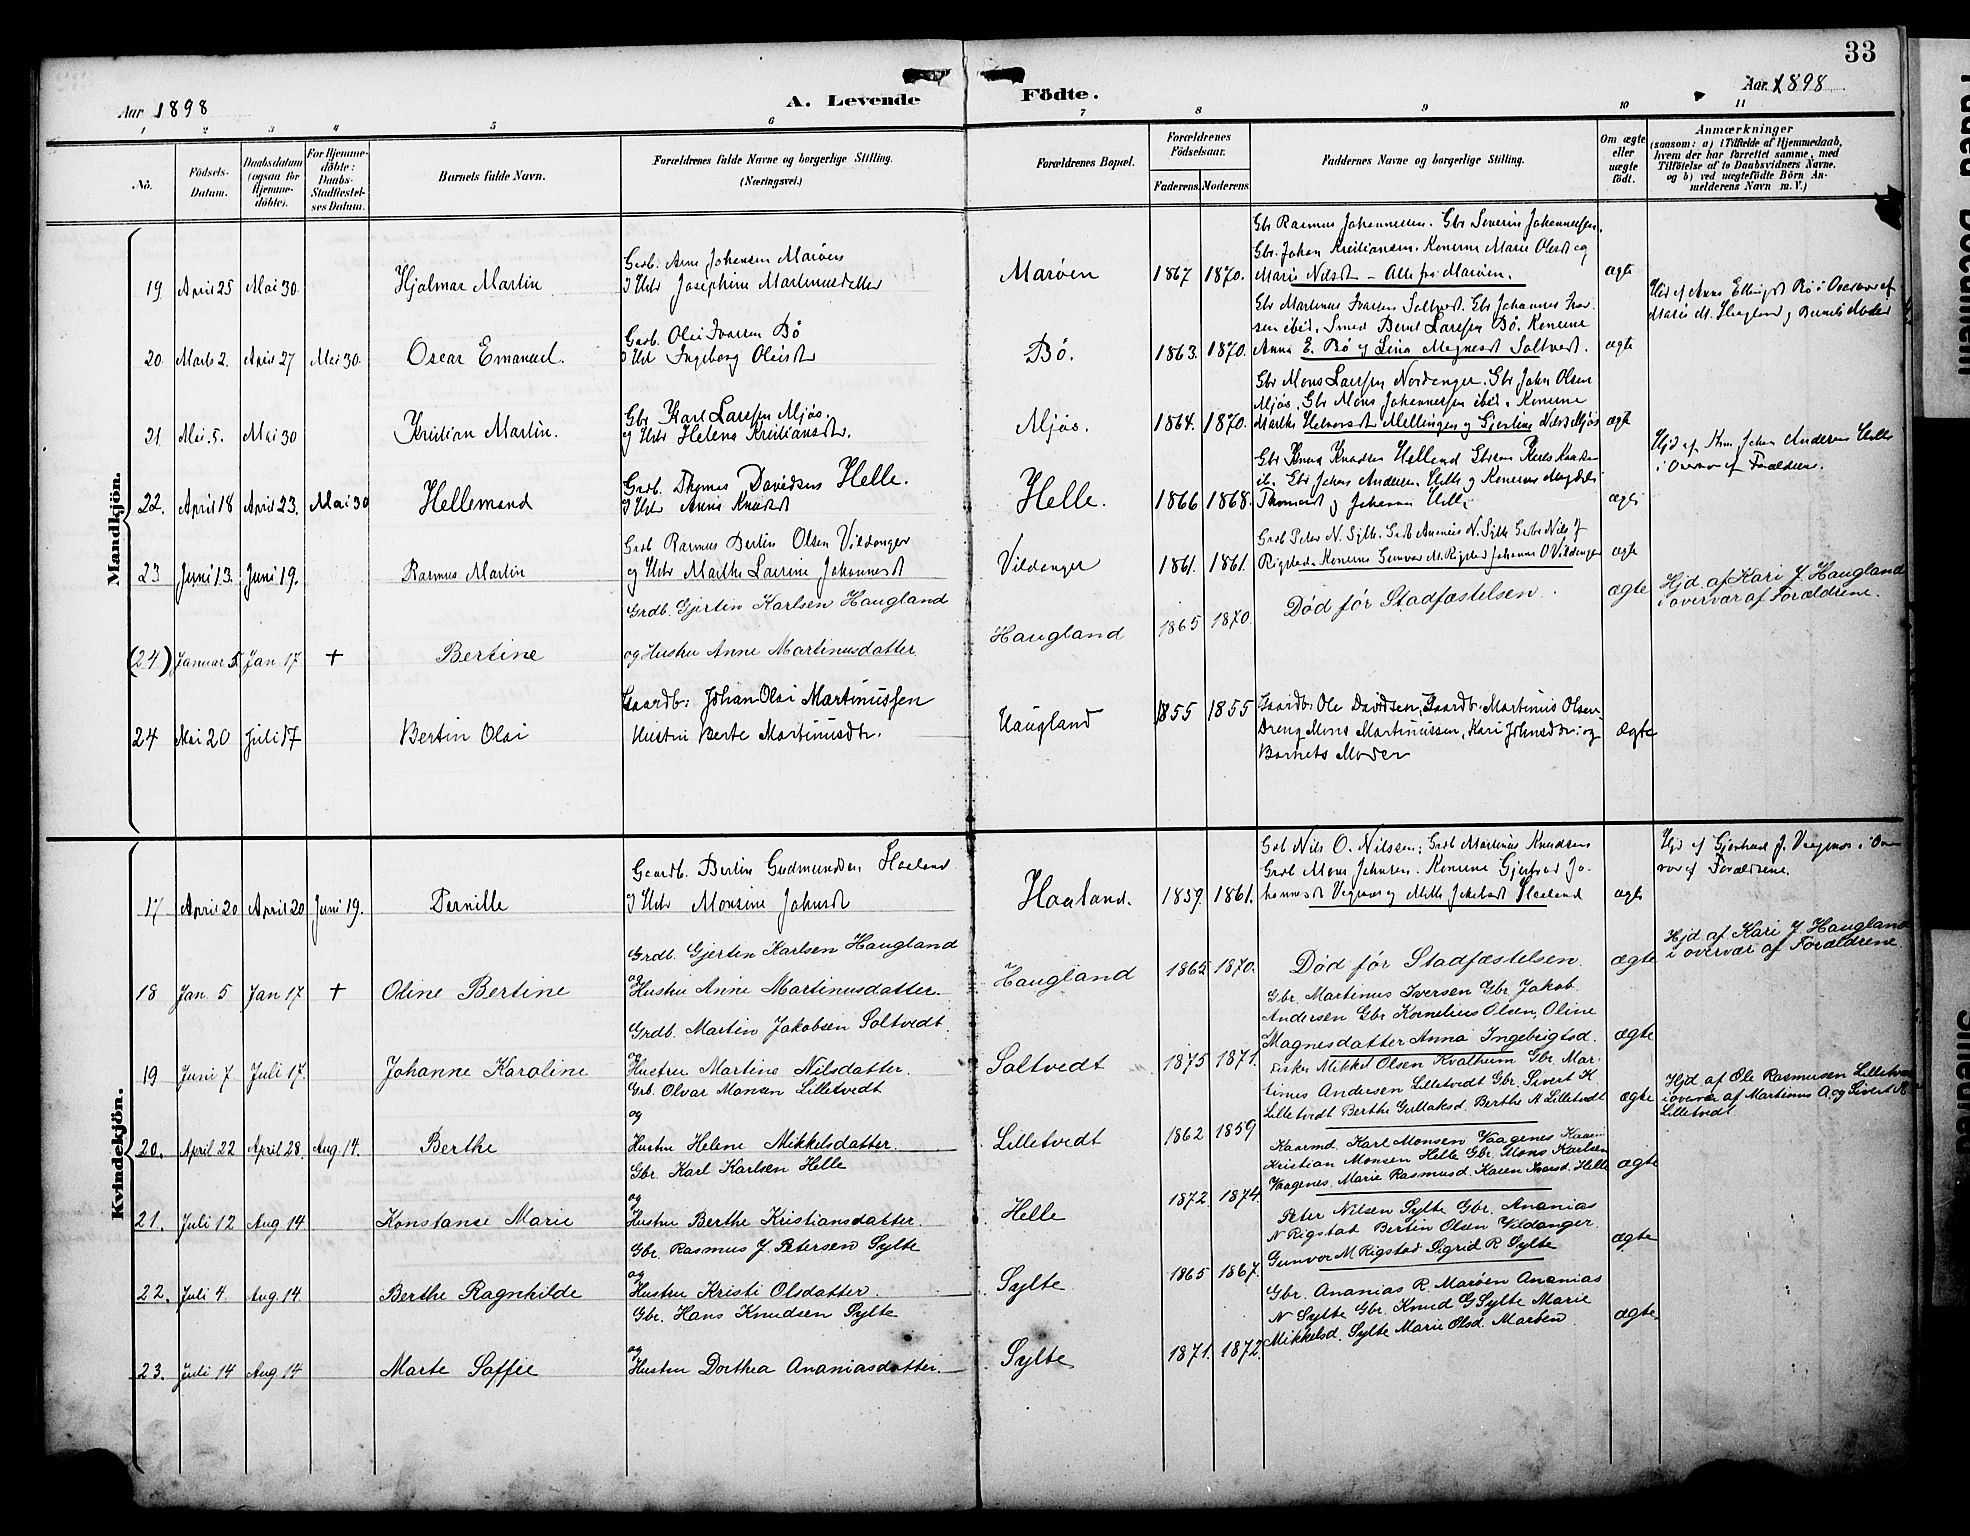 33
Aar 1898
A. Levende
Födte.
Aar 1898
1 2 3 4 5 6 7 8 9 10 11
No.
Födsels-Datum.
Daabsdatum (ogsaa for Hjemme-döbte).
For Hjemme-döbte: Daabs-Stadfæstel-ses Datum.
Barnets fulde Navn.
Forældrenes fulde Navne og borgerlige Stilling. (Næringsvei.)
Forældrenes Bopæl.
Forældrenes Födselsaar.
Faderens. Moderens.
Faddernes Navne og borgerlige Stilling.
Om ægte eller uægte födt.
Anmærkninger
(saasom: a) i Tilfælde af Hjemmedaab, hvem der har forrettet samme, med Tilföielse af to Daabsvidners Navne, og b) ved uægtefödte Börn An-melderens Navn m. V.)
Mandkjön.
19 April 25 Mai 30 Hjalmar Martin
Gaardb. Arne Johansen Maröen
og Hstr Josephine Martinusdatter
Maröen 1867 1870.
Gbr Rasmus Johannessen. Gbr Severin Johannessen.
Gbr. Johan Kristiansen. Konerne Marie Olesdt og
Maris Nilsdt – Alle fra Maröen.
ægte
20. Marts 2. April 27 Mai 30. Oscar Emanuel.
Gaardb. Olai Ivarsen Bö
og Hst Ingeborg Olaisdt
Bö. 1863. 1870.
Gbr Martinus Ivarsen Saltvedt. Gbr Johannes Ivar-
sen ibid. Smed Bernt Larssen Bö. Konerne
Anna E. Bö og Lina Magnesdt Saltvedt.
ægte
Hjd af Anna Ellingsdt Bö i Overvær af
Marie M. Haugland og Barnets Moder
21. Mai 5. Mai 30 Kristian Martin.
Gbr Karl Larssen Mjøs.
og Hstr Helena Kristiansdt.
Mjøs. 1864. 1870.
Gbr Mons Larssen Nordanger. Gbr John Olsen
Mjøs. Gbr Mons Johannessen ibid. Konerne
Marthe Mellingen og Gjertine Nilsd Mjøs
ægte
22. April 18 April 23. Mai 30 Hellemand
Gaardb. Thomas Davidsen Helle.
og Hstr Anna Knudsdt
Helle. 1866 1868.
Gbr Knud Knudsen Helland
ib. Gbr Johan Andersen Helle og Konerne
Thomasdt og Johanna Helle
ægte
Hjd af Johan Andersen Helle
i Overvær af Forældrene.
23 Juni 13. Juni 19. Rasmus Martin
Gaardb Rasmus Bertin Olsen Vildanger
og Hstr Marthe Lavrine Johannesdt
Vildanger 1861. 1861.
Gaardb Peter N. Sylte. Gaardb Ananias N. Sylte Gaardbr Nils J
Rigstad. Konerne Gunvor M. Rigstad Johanna O Vildanger
ægte
(24) Januar 5 Jan. 17 + Bertine
Grdb. Gjertin Karlsen Haugland
og Hustru Anne Martinusdatter
Haugland 1865 1870
Död för Stadfæstelsen.
ægte
Hjd. af Kari J. Haugland
i overvær af Forældrene.
24 Mai 20 Juli 17 Bertin Olai
Gaardb: Johan Olai Martinussen
Hustru Berte Martinusdtr.
Haugland 1855 1855
Gaardb: Ole Davidsen, Gaardb: Martinus Olsen
Dreng Mons Martinussen, Kari Johnsdtr: og
Barnets Moder
ægte
Kvindekjön.
17 April 20 April 20 Juni 19. Pernille
Gaardb. Bertin Gudmundsen Haaland
og Hstr Monsine Johnsdt
Haaland. 1859. 1861.
Grdb Nils O. Nilssen; Grdb Martinus Knudsen
Grdb Mons Johnsen. Konerne Gjertrud Jo-
hannesdt Vagenes og Mette Jakobsdt Haaland
ægte
Hjd af Gjertrud J. Vagenes i Over
vær af Forældrene.
18 Jan. 5 Jan 17 + Oline Bertine
Grdb. Gjertin Karlsen Haugland
og
Hustru Anne Martinusdatter.
Haugland 1865 1870.
Död för Stadfæstelsen.
ægte
Hjd. af Kari J. Haugland
i overvær af Forældrene.
19 Juni 7 Juli 17. Johanne Karoline
Grdb. Martin Jakobsen Soltvedt.
og
Hustru Martine Nilsdatter.
Soltvedt 1875 1871.
Gbr. Martinus Iversen Gbr. Jakob
Andersen Gbr Kornelius Olsen, Oline
Magnesdatter Anna Ingebrigtsd.
ægte
20. April 22 April 28. Aug. 14. Berthe
Grb. Olvar Monsen Lilletvedt
og
Hustru Helene Mikkelsdatter.
Lilletvedt 1862 1859
Fisker Mikkel Olsen Kvalheim Gbr Mar-
tinus Andersen Lilletvedt Gbr. Sivert K.
Lilletvedt Berthe Gullaksd. Berthe N Lilletvedt
ægte
Hjd af Ole Rasmussen Lilletvedt
i overvær af Martinus A. og Sivert K
Lilletvedt
21. Juli 12 Aug 14 Konstanse Marie
Gbr. Karl Karlsen Helle
og
Hustru Berthe Kristiansdatter.
Helle 1872 1874.
Kaarmd. Karl Monsen Vaagenes Kaarm
Kristian Monsen Helle Gbr. Mons Karlsen
Vaagenes. Marie Rasmusd. Karen Ivarsd. Helle
ægte
22. Juli 4. Aug. 14. Berthe Ragnhilde
Gbr. Rasmus J. Petersen Sylte
og
Hustru Kristi Olsdatter.
Sylte 1865 1867.
Peter Nilsen Sylte Gbr. Ananias
N Rigstat Bertin Olsen Vildanger.
Gunvor M Rigstad Sigrid R Sylte
ægte
23. Juli 14 Aug 14 Marte Saffie
Gbr. Hans Knudsen Sylte
og
Hustru Dorthea Ananiasdatter.
Sylte 1871. 1872.
Gbr. Ananias R. Maröen Ananias
N Sylte Gbr. Knud G Sylte Marie
Mikkelsd. Sylte Marie Olsd. Maröen.
ægte.